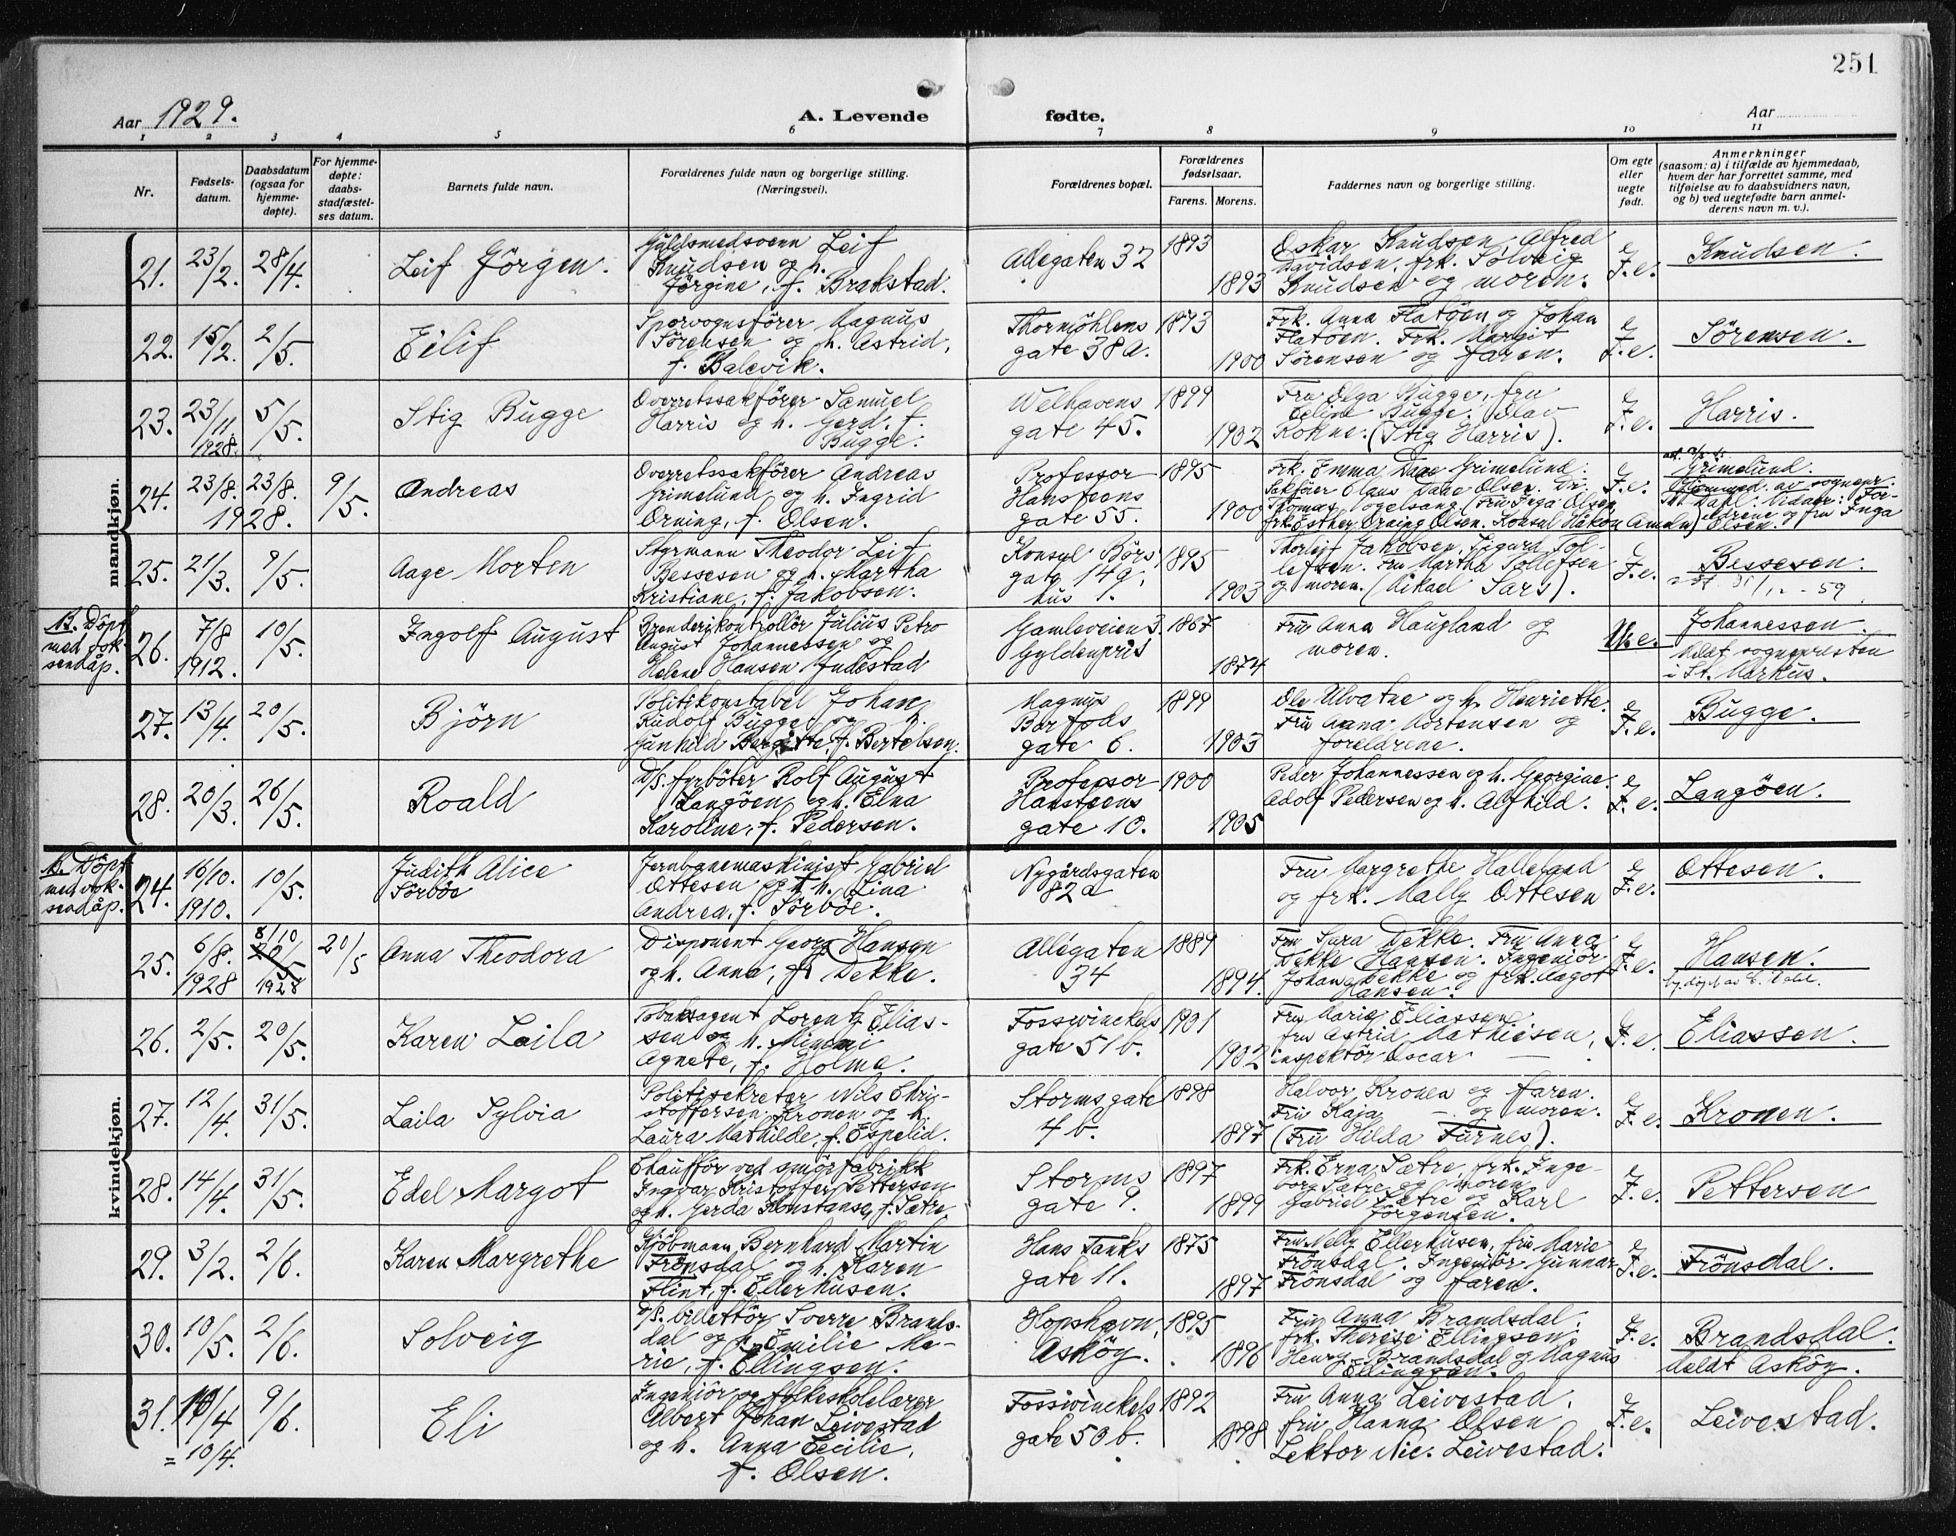 251
Aar 1929.
A. Levende fødte.
Aar
1 2 3 4 5 6 7 8 9 10 11
Nr.
Fødsels-
datum.
Daabsdatum
(ogsaa for
hjemme-
døpte).
For hjemme-
døpte:
daabs-
stadfæstel-
ses datum.
Barnets fulde navn.
Forældrenes fulde navn og borgerlige stilling.
(Næringsvei).
Forældrenes bopæl.
Forældrenes
fødselsaar.
Farens. Morens.
Faddernes navn og borgerlige stilling.
Om egte
eller
uegte
født.
Anmerkninger
(saasom: a) i tilfælde av hjemmedaab,
hvem der har forrettet samme, med
tilføielse av to daabsvidners navn,
og b) ved uegtefødte barn anmel-
derens navn m. v.).
mandkjøn.
21. 23/2. 28/4. Leif Jörgen.
Guldsmedsvenn Leif
Knudsen og h.
Jörgine, f. Brakstad.
Allégaten 32
1893
1893
Oskar Knudsen, Alfred
Davidsen, frk. Solveig
Knudsen og moren.
e
F.e.
Knudsen.
22. 15/2. 2/5. Eilif
Sporvognsförer Magnus
Sörensen og h. Astrid,
f. Balevik.
Thormöhlens
gate 38a.
1893
1900
Frk. Anna Flatöen og Johan
Flatöen. Frk. Margit
Sörensen og faren.
e
F.e.
Sörensen.
23. 23/11. 1928. 5/5. Stig Bugge
Overretssakförer Samuel
Harris og h. Gerd, f.
Bugge.
Welhavens
gate 45.
1899
1902
Fru Olga Bugge, fru
Celine Bugge. Olav
Rohne. (Stig Harris).
e
F.e.
Harris.
24. 23/8. 23/8. 1928. 9/5. Andreas
Overretssakförer Andreas
Grimelund og h. Ingrid
Orning, f. Olsen.
Professor
Hansteens
gate 55.
1895
1900
Frk. Emma Daae Grimelund.
Sakförer Claus Daae Olsen. Dr.
Thomas Vogelsang (Fru Inga Olsen,
frk. Esther Orning Olsen. Konsul Håkon Ameln)
e
F.e.
Grimelund.
Hjemmed. av sognepr.
Dahl. Vidner: For-
eldrene og fru Inga
Olsen.
25. 21/3. 9/5. Aage Morten
Styrmann Theodor Leif
Bessesen og h. Martha
Kristiane, f. Jakobsen.
Konsul Börs
gate 149,
hus 1.
1895
1903
Thorleif Jakobsen, Sigurd Tol-
lefsen. Fru Martha Tollefsen
og moren. (Mikael Sars).
e
F.e.
Bessesen.
59
B. Döpt
med vok-
sendåp.
26. 7/8 1912. 10/5. Ingolf August
Brenderikontrollör Julius Petro
August Johannessen og
Helene Hansen Indestad
Gamleveien 3.
Gyldenpris
1867
1874
Fru Anna Haugland og
moren.
U.e.
Johannessen.
Meldt sognepresten
i St. Markus.
27. 13/4. 20/5. Björn
Politikonstabel Johan
Rudolf Bugge og h.
Gunhild Bergitte, f. Bertelsen.
Magnus
Barfods
gate 6.
1899
1903
Ole Ulvatne og h. Henriette.
Fru Anna Mortensen og
foreldrene.
e
F.e.
Bugge.
28. 20/3. 26/5. Roald
D/S. fyrböter Rolf August
Langöen og h. Elna
Karoline, f. Pedersen.
Professor
Hansteens
gate 10.
1900
1905
Peder Johannessen og h. Georgine.
Adolf Pedersen og h. Alfhild.
e
F.e.
Langöen.
kvindekjøn.
B. Döpt
med vok-
sendåp.
24. 16/10. 1910. 10/5. Judith Alice
Sörböe
Jernbanemaskinist Gabriel
Ottesen og h. Lina
Andrea, f. Sörböe.
Nygårdsgaten
82a
Fru Margrethe Halleland
og frk. Mally Ottesen
e
F.e.
Ottesen.
25. 6/8. 1928 8/10 20/5 1928 20/5 Anna Theodora
Disponent Georg Hansen
og h. Anna, f. Dekke.
Allégaten
34
1889
1894.
Fru Sara Dekke. Fru Anna
Dekke Hansen. Ingeniör
Johan Dekke og frk. Aagot
Hansen.
e
F.e.
Hansen.
26. 2/5. 20/5. Karen Laila
Tobaksagent Lorentz Elias-
sen og h. Mimmi
Agnete, f. Holme.
Fosswinckels
gate 51b.
1901
1902
Fru Marie Eliassen
fru Astrid Mathiesen,
inspektör Oscar —
F.e.
Eliassen.
27. 12/4. 31/5. Laila Sylvia
Politisekretær Nils Chris-
stoffersen Kronen og h.
Laura Mathilde, f. Espelid.
Stormsgate
4b.
1898
1897
Halvor Kronen og faren.
Fru Kaja — og moren.
(Fru Hilda Furnes).
e
F.e.
Kronen.
28. 14/4. 31/5. Edel Margot
Chaufför ved smörfabrikk
Ingvar Kristoffer Pettersen
og h. Gerda Konstanse, f. Sætre.
Storms
gate 9.
1897
1899
Frk. Erna Sætre, frk. Inge-
borg Sætre og moren.
Gabriel Sætre og Karl
Jörgensen.
e
F.e.
Pettersen
29. 3/2. 2/6. Karen Margrethe
Kjöbmann Bernhard Martin
Frönsdal og h. Karen
Flint, f. Ellerhusen.
Hans Tanks
gate 11.
1875
1897
Fru Nelly Ellerhusen, fru Marie
Frönsdal. Ingeniör Gunnar
Frönsdal og faren.
e
F.e.
Frönsdal.
30. 10/5. 2/6. Solveig
D/S. billettör Sverre Brands-
dal og h. Emilie Ma-
rie, f. Ellingsen.
Hopshavn,
Asköy.
1895
1896
Fru Anna Brandsdal,
frk. Therese Ellingsen,
Henry Brandsdal og Magnus
Ellingsen.
e
F.e.
Brandsdal.
Meldt Asköy.
31. 10/4 = 10/4. 9/6. Eli
Ingeniör og folkeskolelærer
Albert Johan Leivestad
og h. Anna Cecilie,
f. Olsen.
Fosswinckels
gate 50b.
1892
1898
Fru Anna Leivestad,
fru Hanna Olsen
Lektor Nic. Leivestad.
e
F.e.
Leivestad.